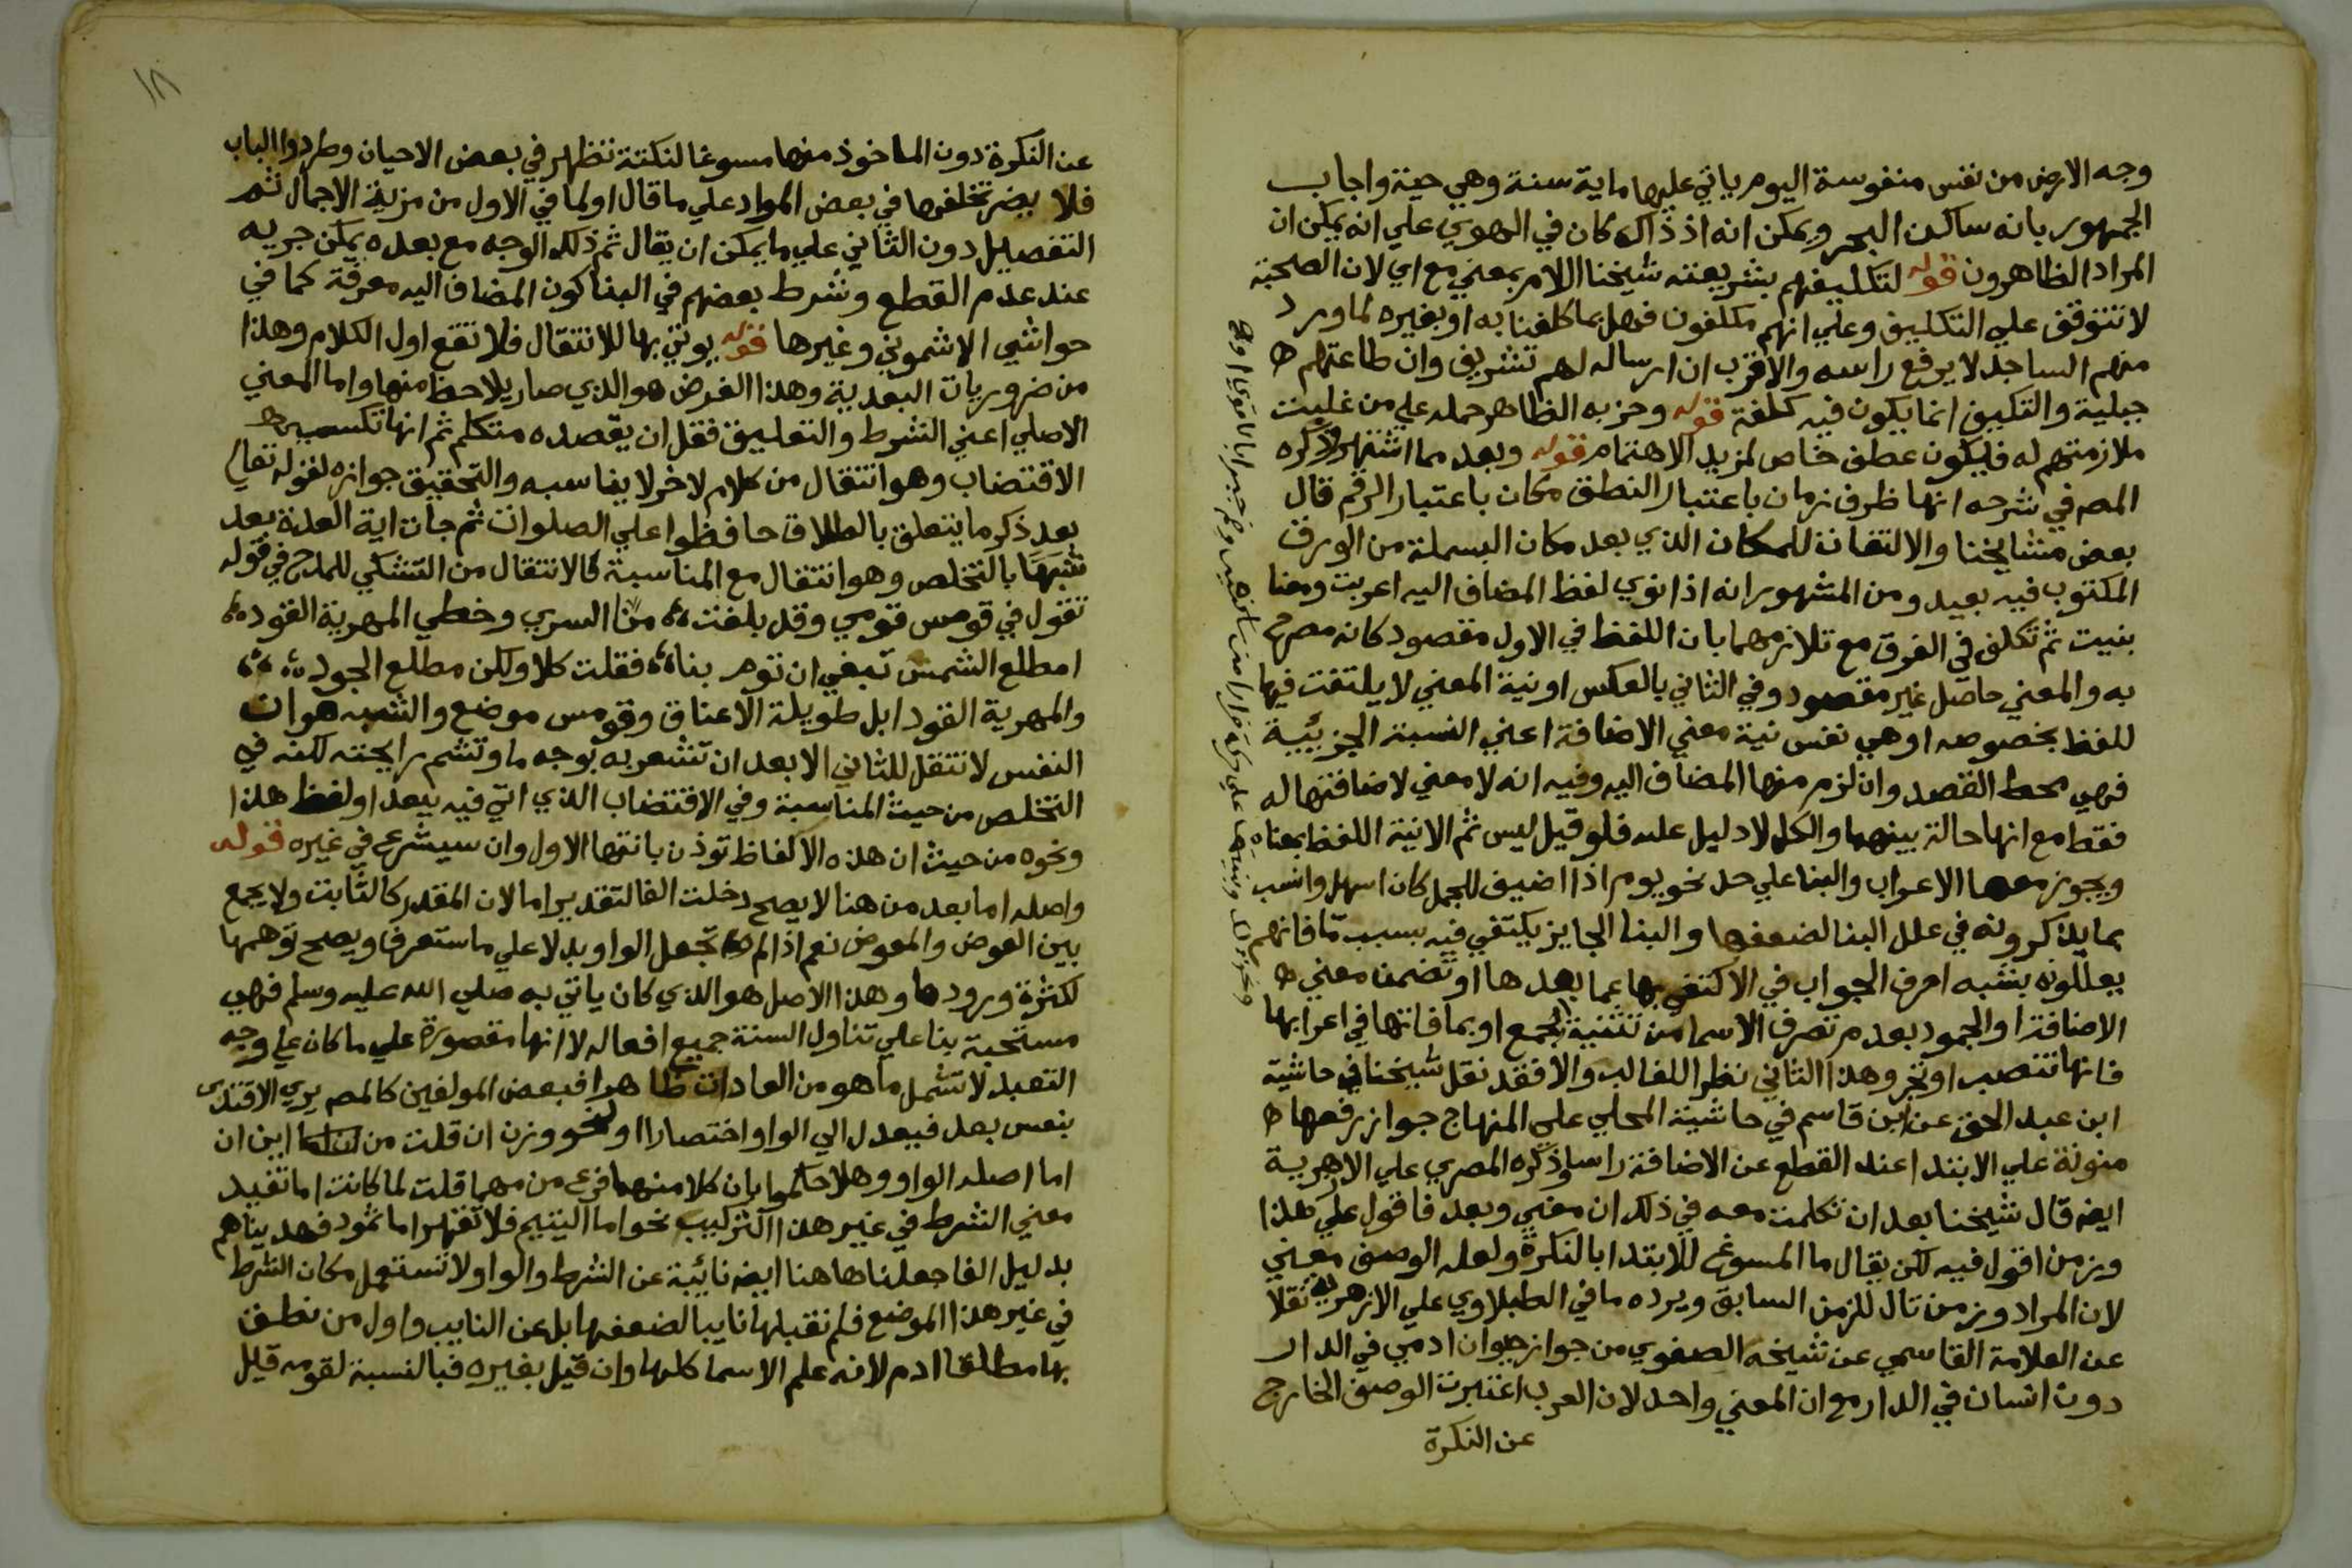 وجه الارض من نفس منفوسة اليوم ياتي عليها ماية سنة وهي حية واجاب
الجمهور بانه ساكن البحر ويمكن انه اذ ذاك كان في الهوي علي انه يمكن ان
المراد الظاهرون قوله لتكليفهم بشريعته شيخنا اللام بمعني مع اي لان الصحبة
لا تتوقف علي التكليف وعلي انهم مكلفون فهل بما كلفنا به او بغيره لما ورد
منهم الساجد لا يرفع راسه والاقرب ان ارساله لهم تشريف وان طاعتهم
جبلية والتكيف انما يكون فيه كلفة قوله وحزبه الظاهر حمله علي من غلبت
ملازمتهم له فليكون عطف خاص لمزيد الاهتمام قوله وبعد مما اشتهر وذكره
المص في شرحه انها ظرف زمان باعتبار النطق مكان باعتبار الرقم قال
بعض مشايخنا والالتفات للمكان الذي بعد مكان البسملة من الورق
المكتوب فيه بعيد ومن المشهور انه اذا نوي لفظ المضاف اليه اعربت ومعنا
بنيت ثم تكلف في الفرق مع تلازمهما بان اللفظ في الاول مقصود كانه مصرح
به والمعني حاصل غير مقصود وفي الثاني بالعكس او نية المعني لا يلتفت فيها
للفظ بخصوصه او هي نفس نية معني الاضافة اعني النسبة الجزئيية
فهي محط القصد وان لزم منها المضاف اليه وفيه انه لا معني لاضافتها له
فقط مع انها حالة بينهما والكل لا دليل عليه فلو قيل ليس ثم الا نية اللفظ بمعناه
ويجوز معها الاعراب والبنا علي حد نحو يوم اذا اضيف للجمل كان اسهل وانسب
بما يذكرونه في علل البنا لضعفها والبنا الجايز يكتفي فيه بسبب ما فانهم
يعللونه بشبه احرف الجواب في الاكتفي بها عما بعدها او تضمن معني
الاضافة او الجمود بعدم تصرف الاسما من تثنية وجمع او بما فاتها في اعرابها
فانها تنصب او تجر وهذا الثاني نظر اللغالب والا فقد نقل شيخنا في حاشية
ابن عبد الحق عن ابن قاسم في حاشية المحلي علي المنهاج جواز رفعها
منونة علي الابتدا عند القطع عن الاضافة راسا وذكره المصري علي الازهرية
ايضه قال شيخنا بعد ان تكلمت معه في ذلك ان معني وبعد فاقول علي هذا
وزمن اقول فيه لكن يقال ما المسوغ للابتدا بالنكرة ولعله الوصف معني
لان المراد وزمن تال للزمن السابق ويرده ما في الطبلاوي علي الازهرية نقلا
عن العلامة القاسمي عن شيخه الصفوي من جواز حيوان ادمي في الدار
دون انسان في الدار مع ان المعني واحد لان العرب اعتبرت الوصف الخارج
عن النكرة
١٨
عن النكرة دون الماخوذ منها مسوغا لنكتة تظهر في بعض الاحيان وطردوا الباب
فلا يضر تخلفها في بعض المواد علي ما قال او لما في الاول من مزية الاجمال ثم
التفصيل دون الثاني علي ما يمكن ان يقال ثم ذلك الوجه مع بعده يمكن جريه
عند عدم القطع وشرط بعضهم في البنا كون المضاف اليه معرفة كما في
حواشي الاشموني وغيرها قوله يوتي بها للانتقال فلا تقع اول الكلام وهذا
من ضروريات البعدية وهذا الغرض هو الذي صار يلاحظ منها واما المعني
الاصلي اعني الشرط والتعليق فقل ان يقصده متكلم ثم انها تكسب
الاقتضاب وهو انتقال من كلام لاخر لا يناسبه والتحقيق جوازه لقوله تعالي
بعد ذكر ما يتعلق بالطلاق حافظوا علي الصلوات ثم جات اية العدة بعد
شبها بالتخلص وهو انتقال مع المناسبة كالانتقال من التشكي للمدح في قوله
تقول في قومس قومي وقد بلغت ؛ منا السري وخطي المهرية القود ؛
امطلع الشمس تبغي ان توم بنا ؛ فقلت كلا ولكن مطلع الجود ؛
والمهرية القود ابل طويلة الاعناق وقومس موضع والشبه هو ان
النفس لا تنتقل للثاني الا بعد ان تشعر به بوجه ما وتشم رايحته لكنه في
التخلص من حيث المناسبة وفي الاقتضاب الذي اتي فيه ببعد او لفظ هذا
ونحوه من حيث ان هذه الالفاظ توذن بانتها الاول وان سيشرع في غيره قوله
واصله اما بعد من هنا لا يصح دخلت الفا لتقدير اما لان المقدر كالثابت ولا يجمع
بين العوض والمعوض نعم اذا لم تجعل الواو بدلا علي ما ستعرف ويصح توهمها
لكثرة ورودها وهذا الاصل هو الذي كان ياتي به صلي الله عليه وسلم فهي
مستحبة بنا علي تناول السنة جميع افعاله لا انها مقصورة علي ما كان علي وجه
التعبد لا تشمل ما هو من العادات ظاهرا فبعض المولفين كالمص يري الاقتدى
بنفس بعد فيعدل الي الواو اختصارا او لنحو وزن ان قلت من اين ان
اما اصله الواو وهلا حكموا بان كلا منهما فرع من مهما قلت لما كانت اما تفيد
معني الشرط في غير هذا التركيب نحو اما اليتيم فلا تقهر اما ثمود فهديناهم
بدليل الفا جعلناها هنا ايضه نائبة عن الشرط والواو لا تستعمل مكان الشرط
في غير هذا الموضع فلم نقبلها نايبا لضعفها بل عن النايب واول من نطق
بها مطلقا ادم لانه علم الاسما كلها وان قيل بغيره فبالنسبة لقومه قيل